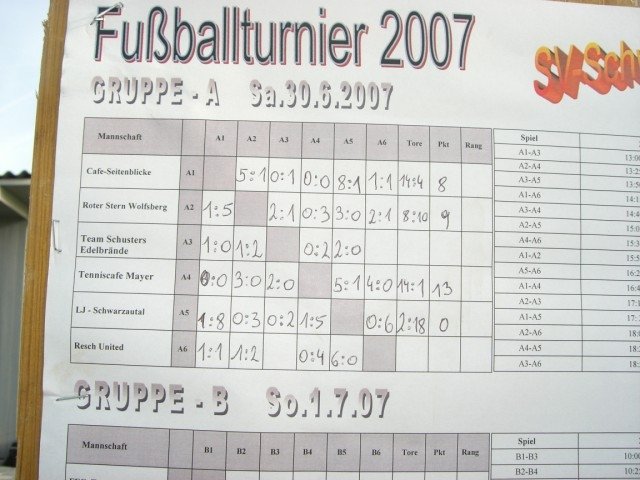 Fußballturnier 2007
SV-Sch
GRUPPE - A Sa.30.6.2007
Mannschaft A1 A2 A3 A4 A5 A6 Tore Pkt Rang
Cafe-Seitenblicke A1 5:1 0:1 0:0 8:1 1:1 14:4 8
Roter Stern Wolfsberg A2 1:5 2:1 0:3 3:0 2:1 8:10 9
Team Schusters
Edelbrände A3 1:0 1:2 0:2 2:0
Tenniscafe Mayer A4 0:0 3:0 2:0 5:1 4:0 14:1 13
LJ - Schwarzautal A5 1:8 0:3 0:2 1:5 0:6 2:18 0
Resch United A6 1:1 1:2 0:4 6:0
Spiel
A1-A3 13:0
A2-A4 13:2
A3-A5 13:
A1-A6 14:1
A3-A4 14:
A2-A5 15:0
A4-A6 15:
A1-A2 15:5
A5-A6 16:2
A1-A4 16:
A2-A3 17:1
A1-A5 17:
A2-A6 18:0
A4-A5 18:
A3-A6 18:
GRUPPE - B So.1.7.07
Mannschaft B1 B2 B3 B4 B5 B6 Tore Pkt Rang
B1
Spiel
B1-B3 10:00
B2-B4 10:25